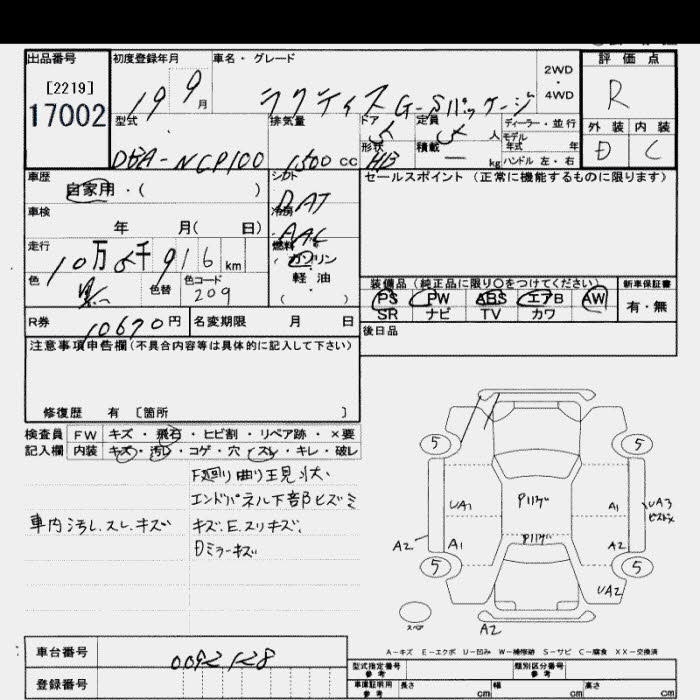 出品番号 初度登録年月 車名・グレード 評価点
[2219] 19 9月 ラクティス G-Sパッケージ 2WD・4WD R
17002
型式 排気量 ドア 定員 人 ディーラー・並行 外装 内装
DBA-NCP100 1,500cc 5 5 モデル年式 年 D C
形状 H/B 積載 ー kg ハンドル 左・右
車歴 シフト セールスポイント (正常に機能するものに限ります)
自家用・( ) DAT
車検 冷房
年 月( 日) AAC
走行 燃料
10万5千916km ガソリン
色 色替 色コード 軽油
209 ( )
装備品 (純正品に限り○をつけてください) 新車保証書
PS PW ABS エアB AW 有・無
SR ナビ TV カワ
R券 10670円 名変期限 月 日
後日品
注意事項申告欄(不具合内容等は具体的に記入して下さい)
修復歴 有 [箇所 ]
検査員 FW キズ・飛石・ヒビ割・リペア跡・×要
記入欄 内装 キズ・汚レ・コゲ・穴・スレ・キレ・破レ
F廻り曲り主見状、
エンドパネル下部ヒズミ
車内汚レ、スレ、キズ キズ、E、スリキズ、
Dミラーキズ
5 5
UA1 P1137" A1 UA3
A2 A1 P1137" A2
5 5
UA2
スペア A2
A-キズ E-エクボ U-凹み W-補修跡 S-サビ C-腐食 XX-交換済
車台番号 0092128
登録番号
型式指定番号 参考 類別区分番号 参考
車庫証明用 参考 長さ cm 幅 cm 高さ cm